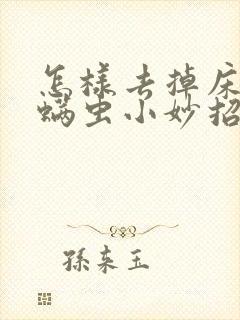 怎樣去掉床
螨虫小妙招
孫来玉